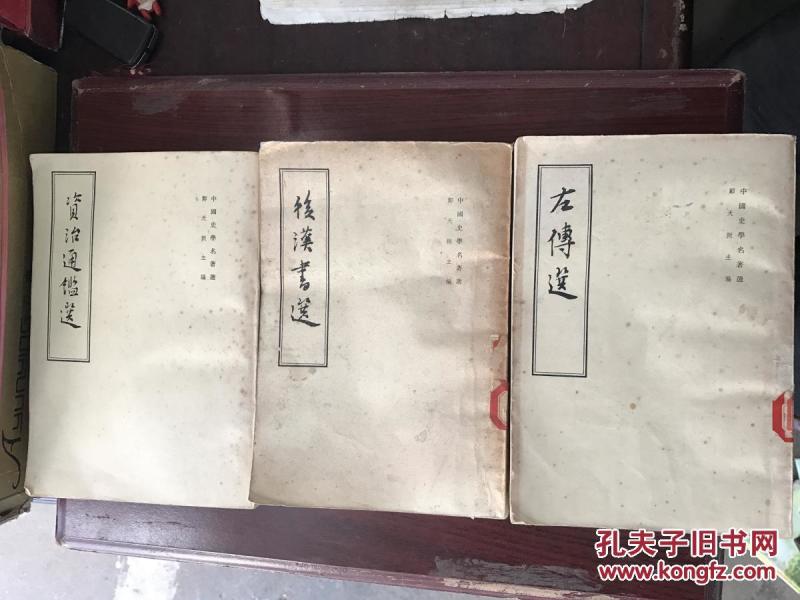 資治通鑑選
中國史學名著選
鄭天挺主編
後漢書選
中國史學名著選
鄭天挺主編
左傳選
中國史學名著選
鄭天挺主編
孔夫子旧书网
www.kongfz.com